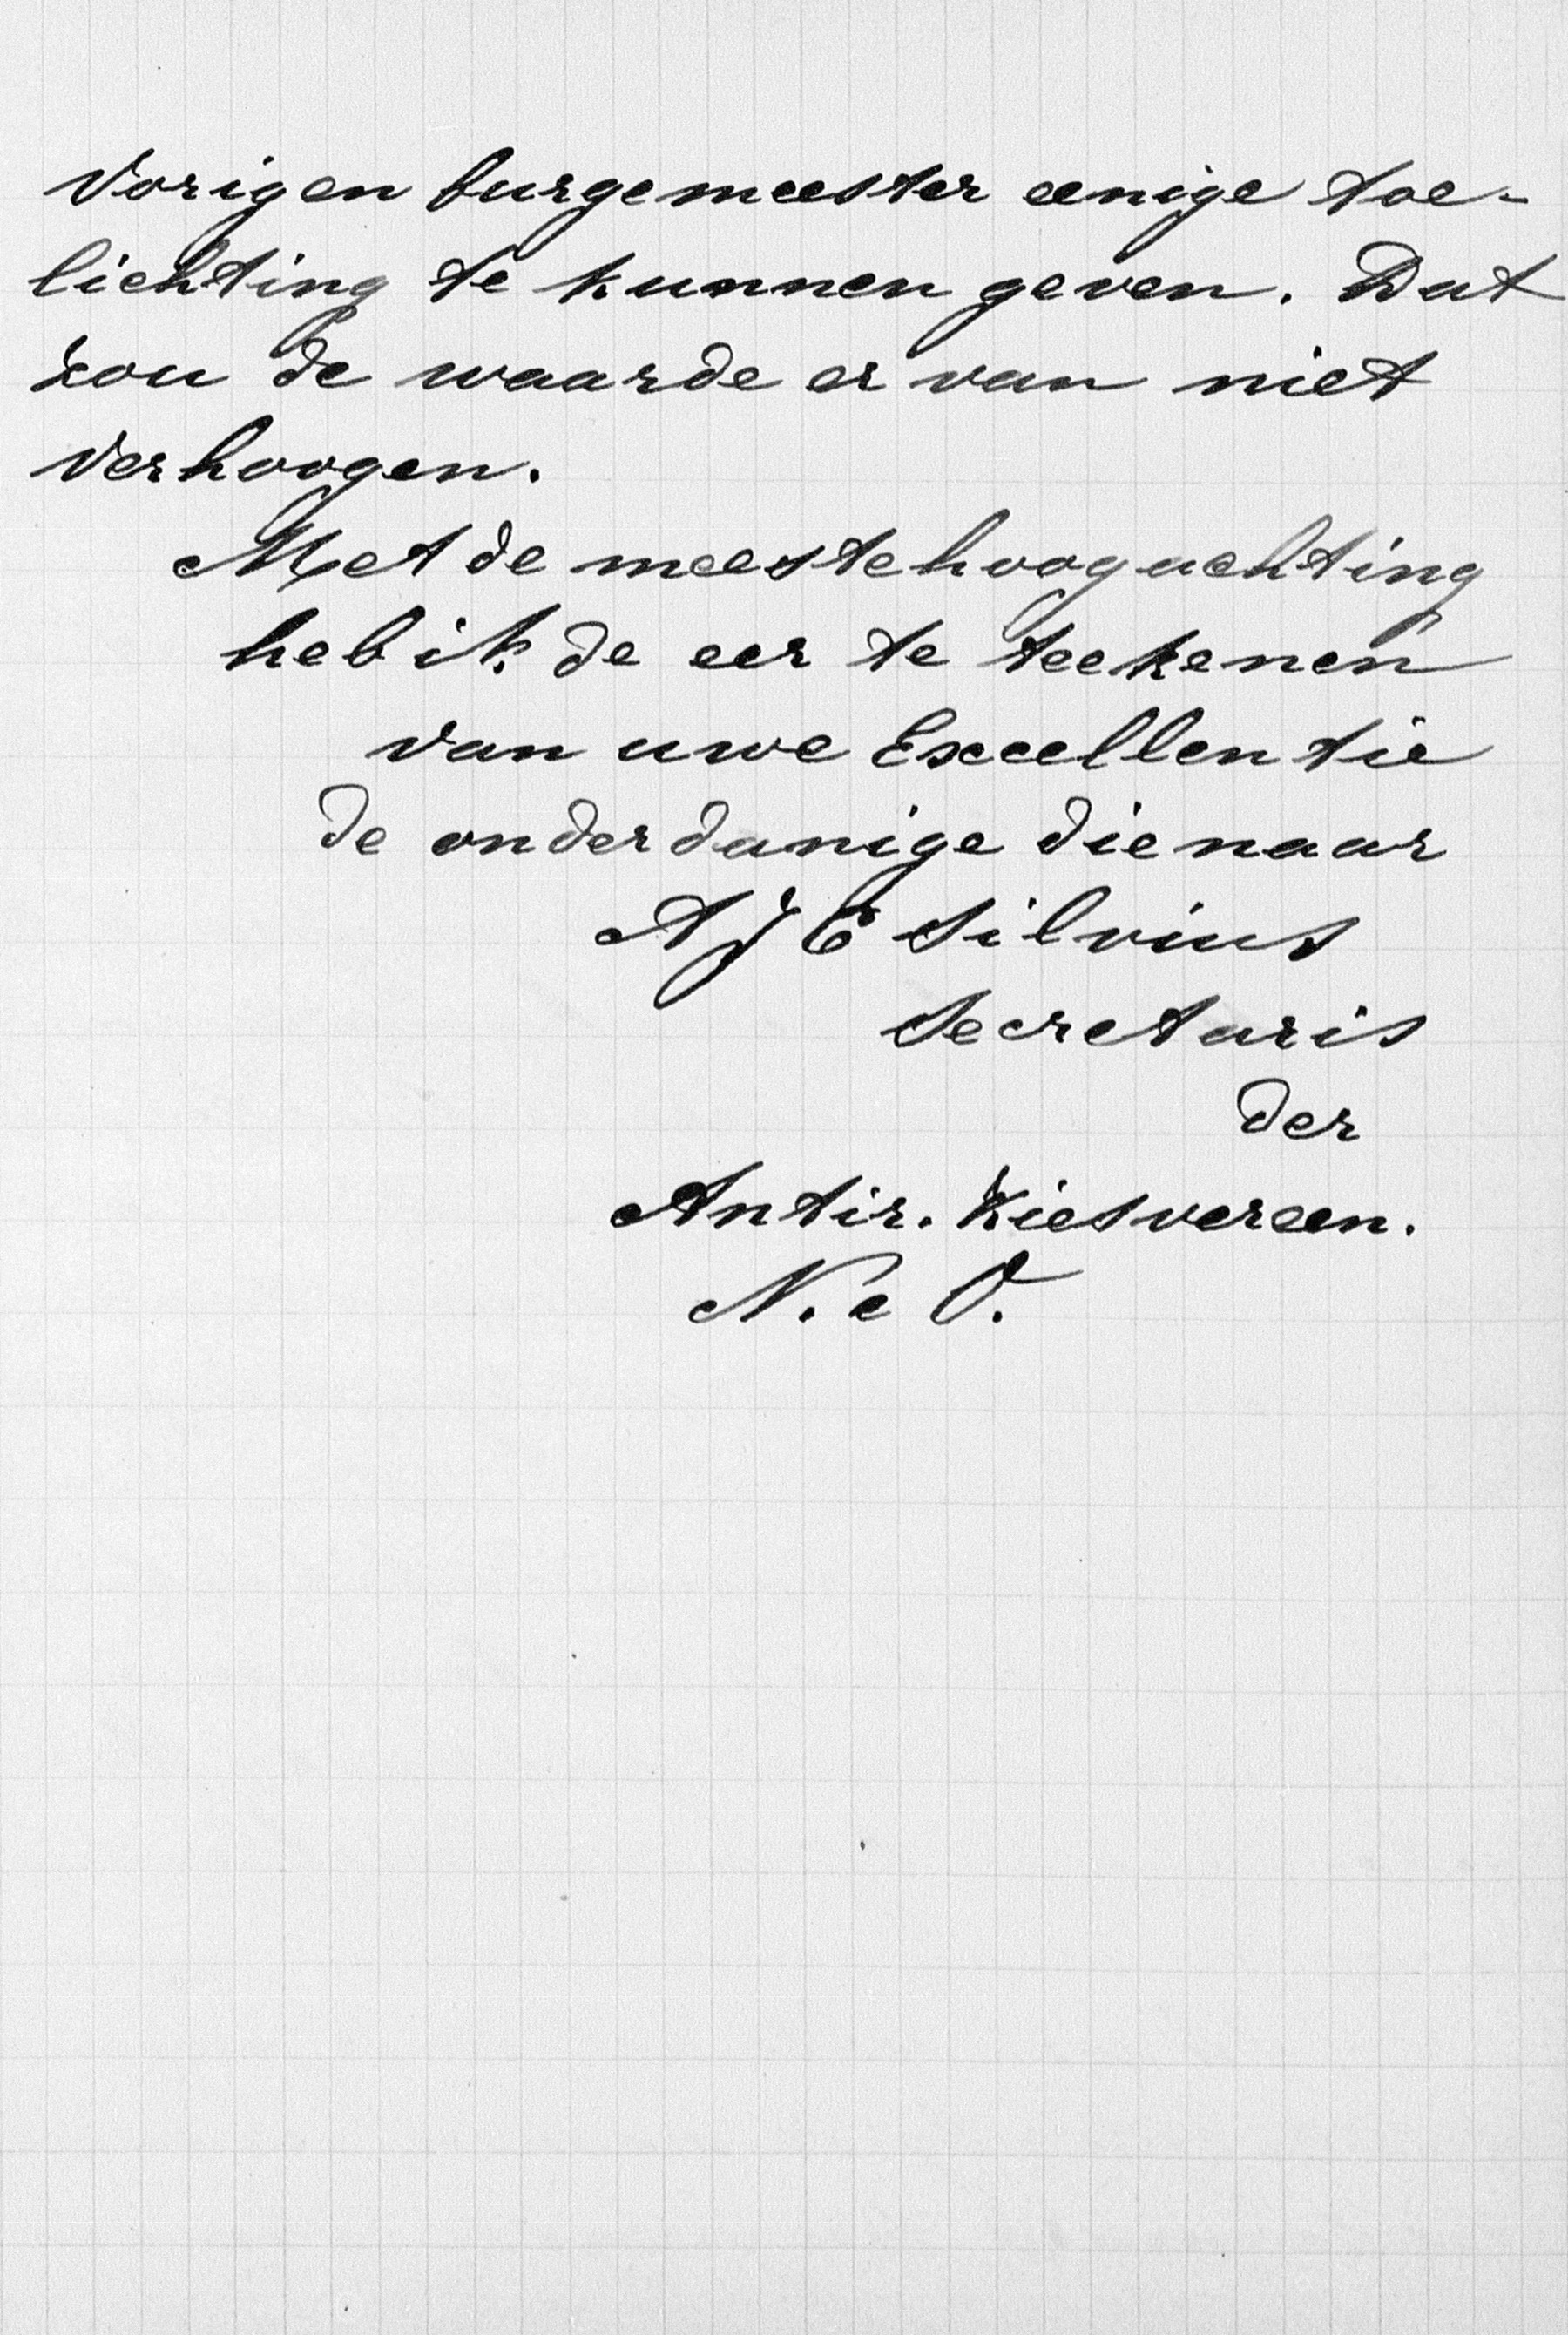 vorigen burgemeester eenige toe-
lichting te kunnen geven. Dat
zou de waarde er van niet
verhoogen.
Met de meeste hoogachting
heb ik de eer te teekenen
van uwe Excellentie
de onderdanige dienaar
A J E Silvius
Secretaris
der
Antir. Kiesvereen.
N. e O.